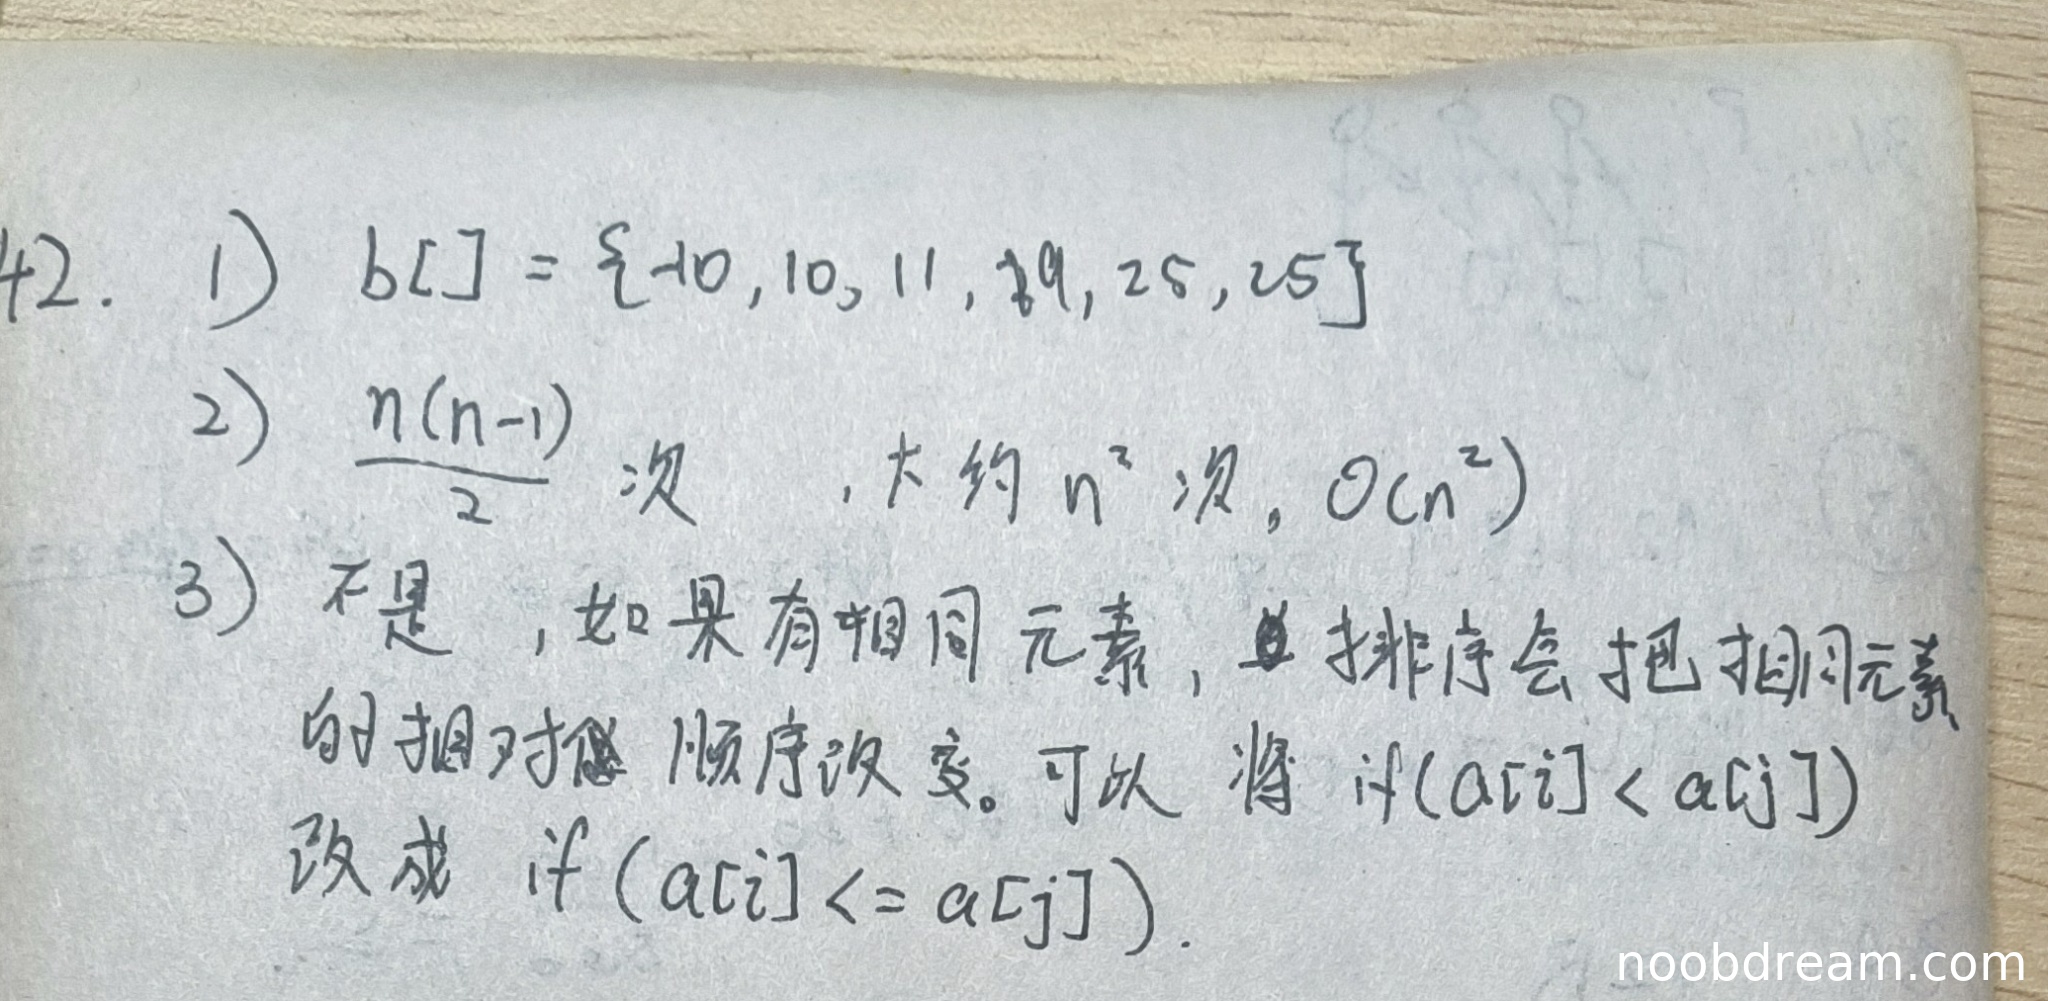 42. 1) b[] = {-10, 10, 11, 19, 25, 25}
2) n(n-1)/2 次 ,大约 n² 次。O(n²)
3) 不是 ,如果有相同元素, 排序会把相同元素
的相对 顺序改变。可以 将 if(a[i] < a[j])
改成 if (a[i] <= a[j]).
noobdream.com